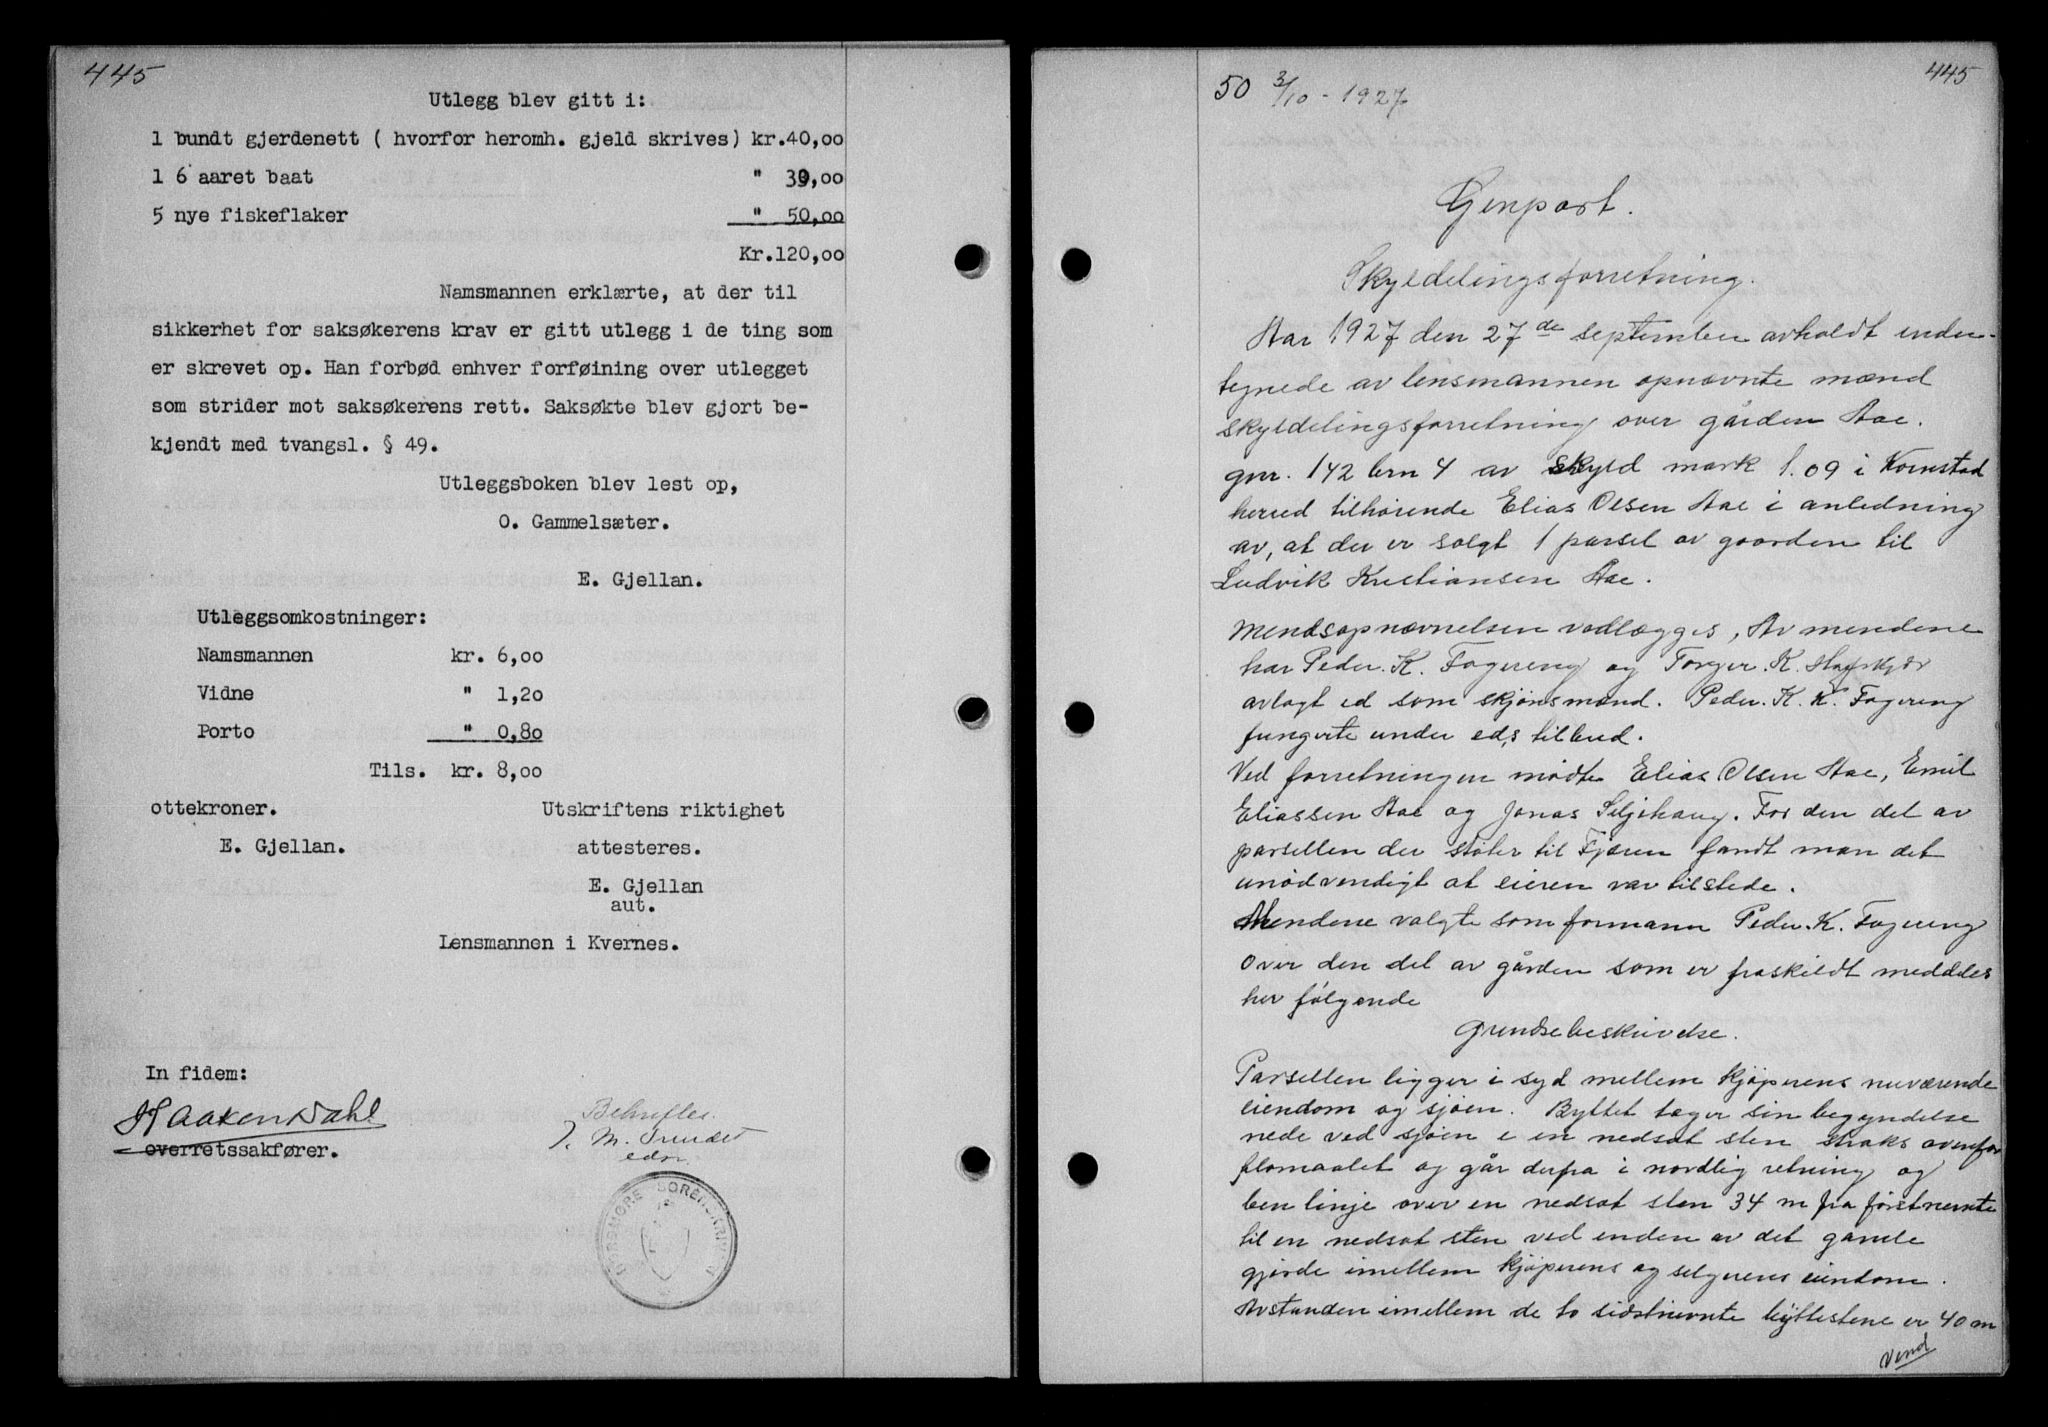 445
Utlegg blev gitt i:
1 bundt gjerdenett ( hvorfor heromh. gjeld skrives) kr.40,00
1 6 aaret baat " 30,00
5 nye fiskeflaker " 50,00
Kr.120,00
Namsmannen erklærte, at der til
sikkerhet for saksøkerens krav er gitt utlegg i de ting som
er skrevet op. Han forbød enhver forføining over utlegget
som strider mot saksøkerens rett. Saksøkte blev gjort be-
kjendt med tvangsl. § 49.
Utleggsboken blev lest op,
O. Gammelsæter.
E. Gjellan.
Utleggsomkostninger:
Namsmannen kr. 6,00
Vidne " 1,20
Porto " 0,80
Tils. kr. 8,00
ottekroner.
E. Gjellan.
Utskriftens riktighet
attesteres.
E. Gjellan
aut.
Lensmannen i Kvernes.
In fidem:
Haaken Dahl
overretssakfører.
Bekreftes
M.
edsv.
NORDMØRE SORENSKRIVERI
445
50 3/10 - 1927
Genpart.
Skyldelingsforretning.
Aar 1927 den 27de september avholdt under-
tegnede av lensmannen opnævnte mænd
skyldelingsforretning over gården Aae.
gnr. 142 brn 4 av skyld mark 1.09 i Kornstad
herred tilhørende Elias Olsen Aae i anledning
av, at der er solgt 1 parsel av gaarden til
Ludvik Kristiansen Aae.
Mendsopnævnelsen vedlægges, Av mendene
har Peder. K. Fagereng og Torger. K.
avlagt ed som skjønsmænd. Peder. K. K. Fagereng
fungerte under eds tilbud.
Ved forretningen mødte Elias Olsen Aae, Emil
Eliassen Aae og Jonas Siljehaug. For den del av
parsellen der støter til Fjæren fandt man det
unødvendigt at eieren var tilstede.
Mendene valgte som formann Peder. K. Fagereng
Over den del av gården som er fraskildt meddeles
her følgende
Grendsebeskrivelse.
Parsellen ligger i syd mellem kjøperens nuværende
eiendom og sjøen. Byttet tager sin begyndelse
nede ved sjøen i en nedsat sten straks ovenfor
flomaalet og går derfra i nordlig retning og
ben linje over en nedsat sten 34 m fra førstnevnte
til en nedsat sten ved enden av det gamle
gjerde imellem kjøperens og selgerens eiendom.
Avstanden imellem de to sidstnevnte byttestene er 40 m
Vend